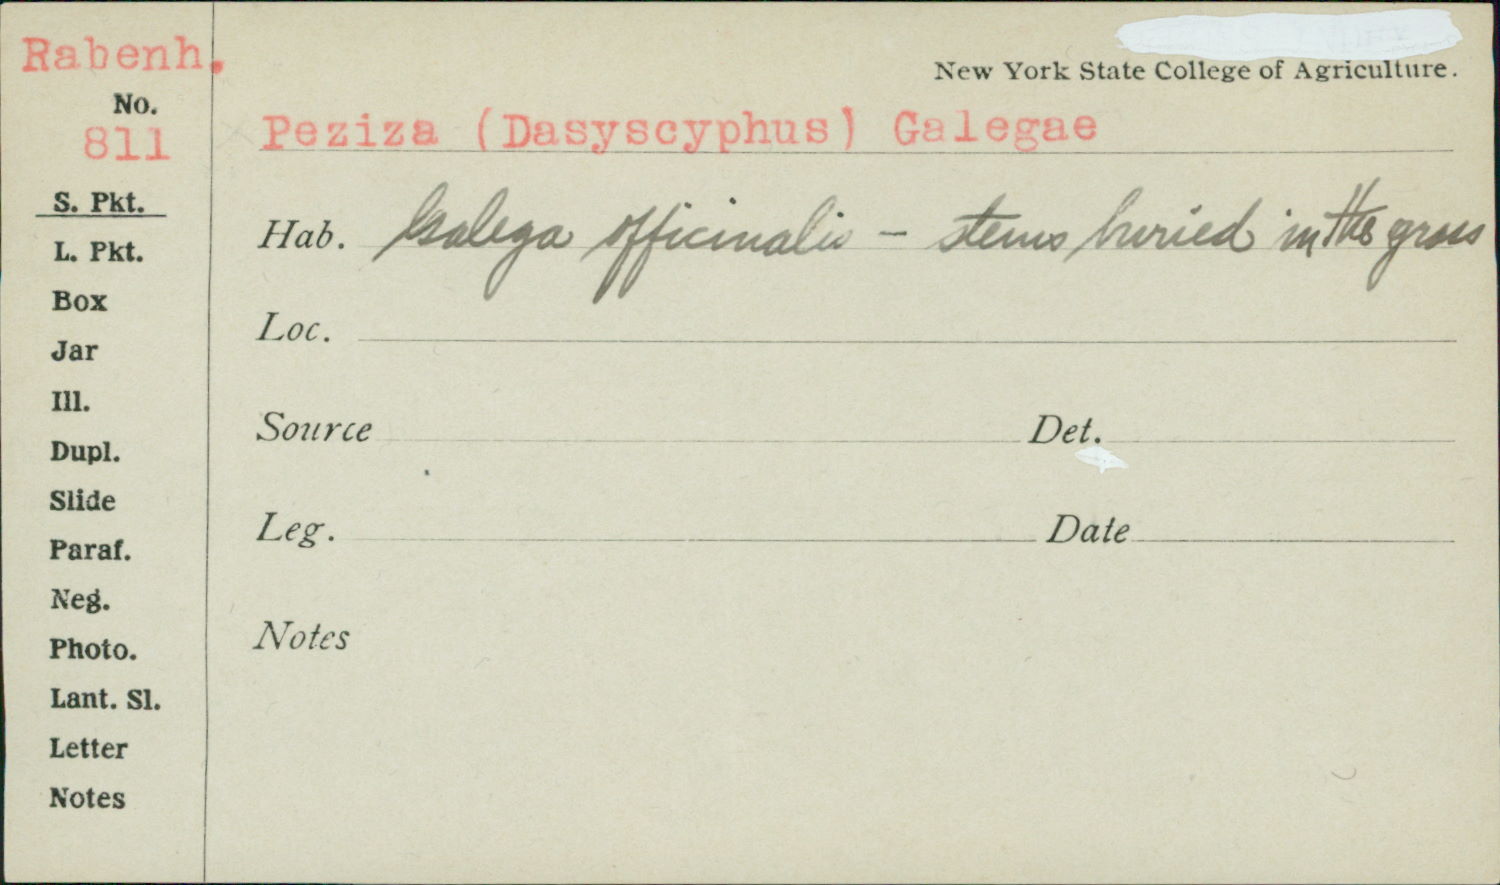 Rabenh.
New York State College of Agriculture.
No.
811
Peziza (Dasyscyphus) Galegae
S. Pkt.
Hab. Galega officinalis – stems buried in the grass
L. Pkt.
Box
Loc.
Jar
Ill.
Source Det.
Dupl.
Slide
Leg. Date
Paraf.
Neg.
Notes
Photo.
Lant. Sl.
Letter
Notes